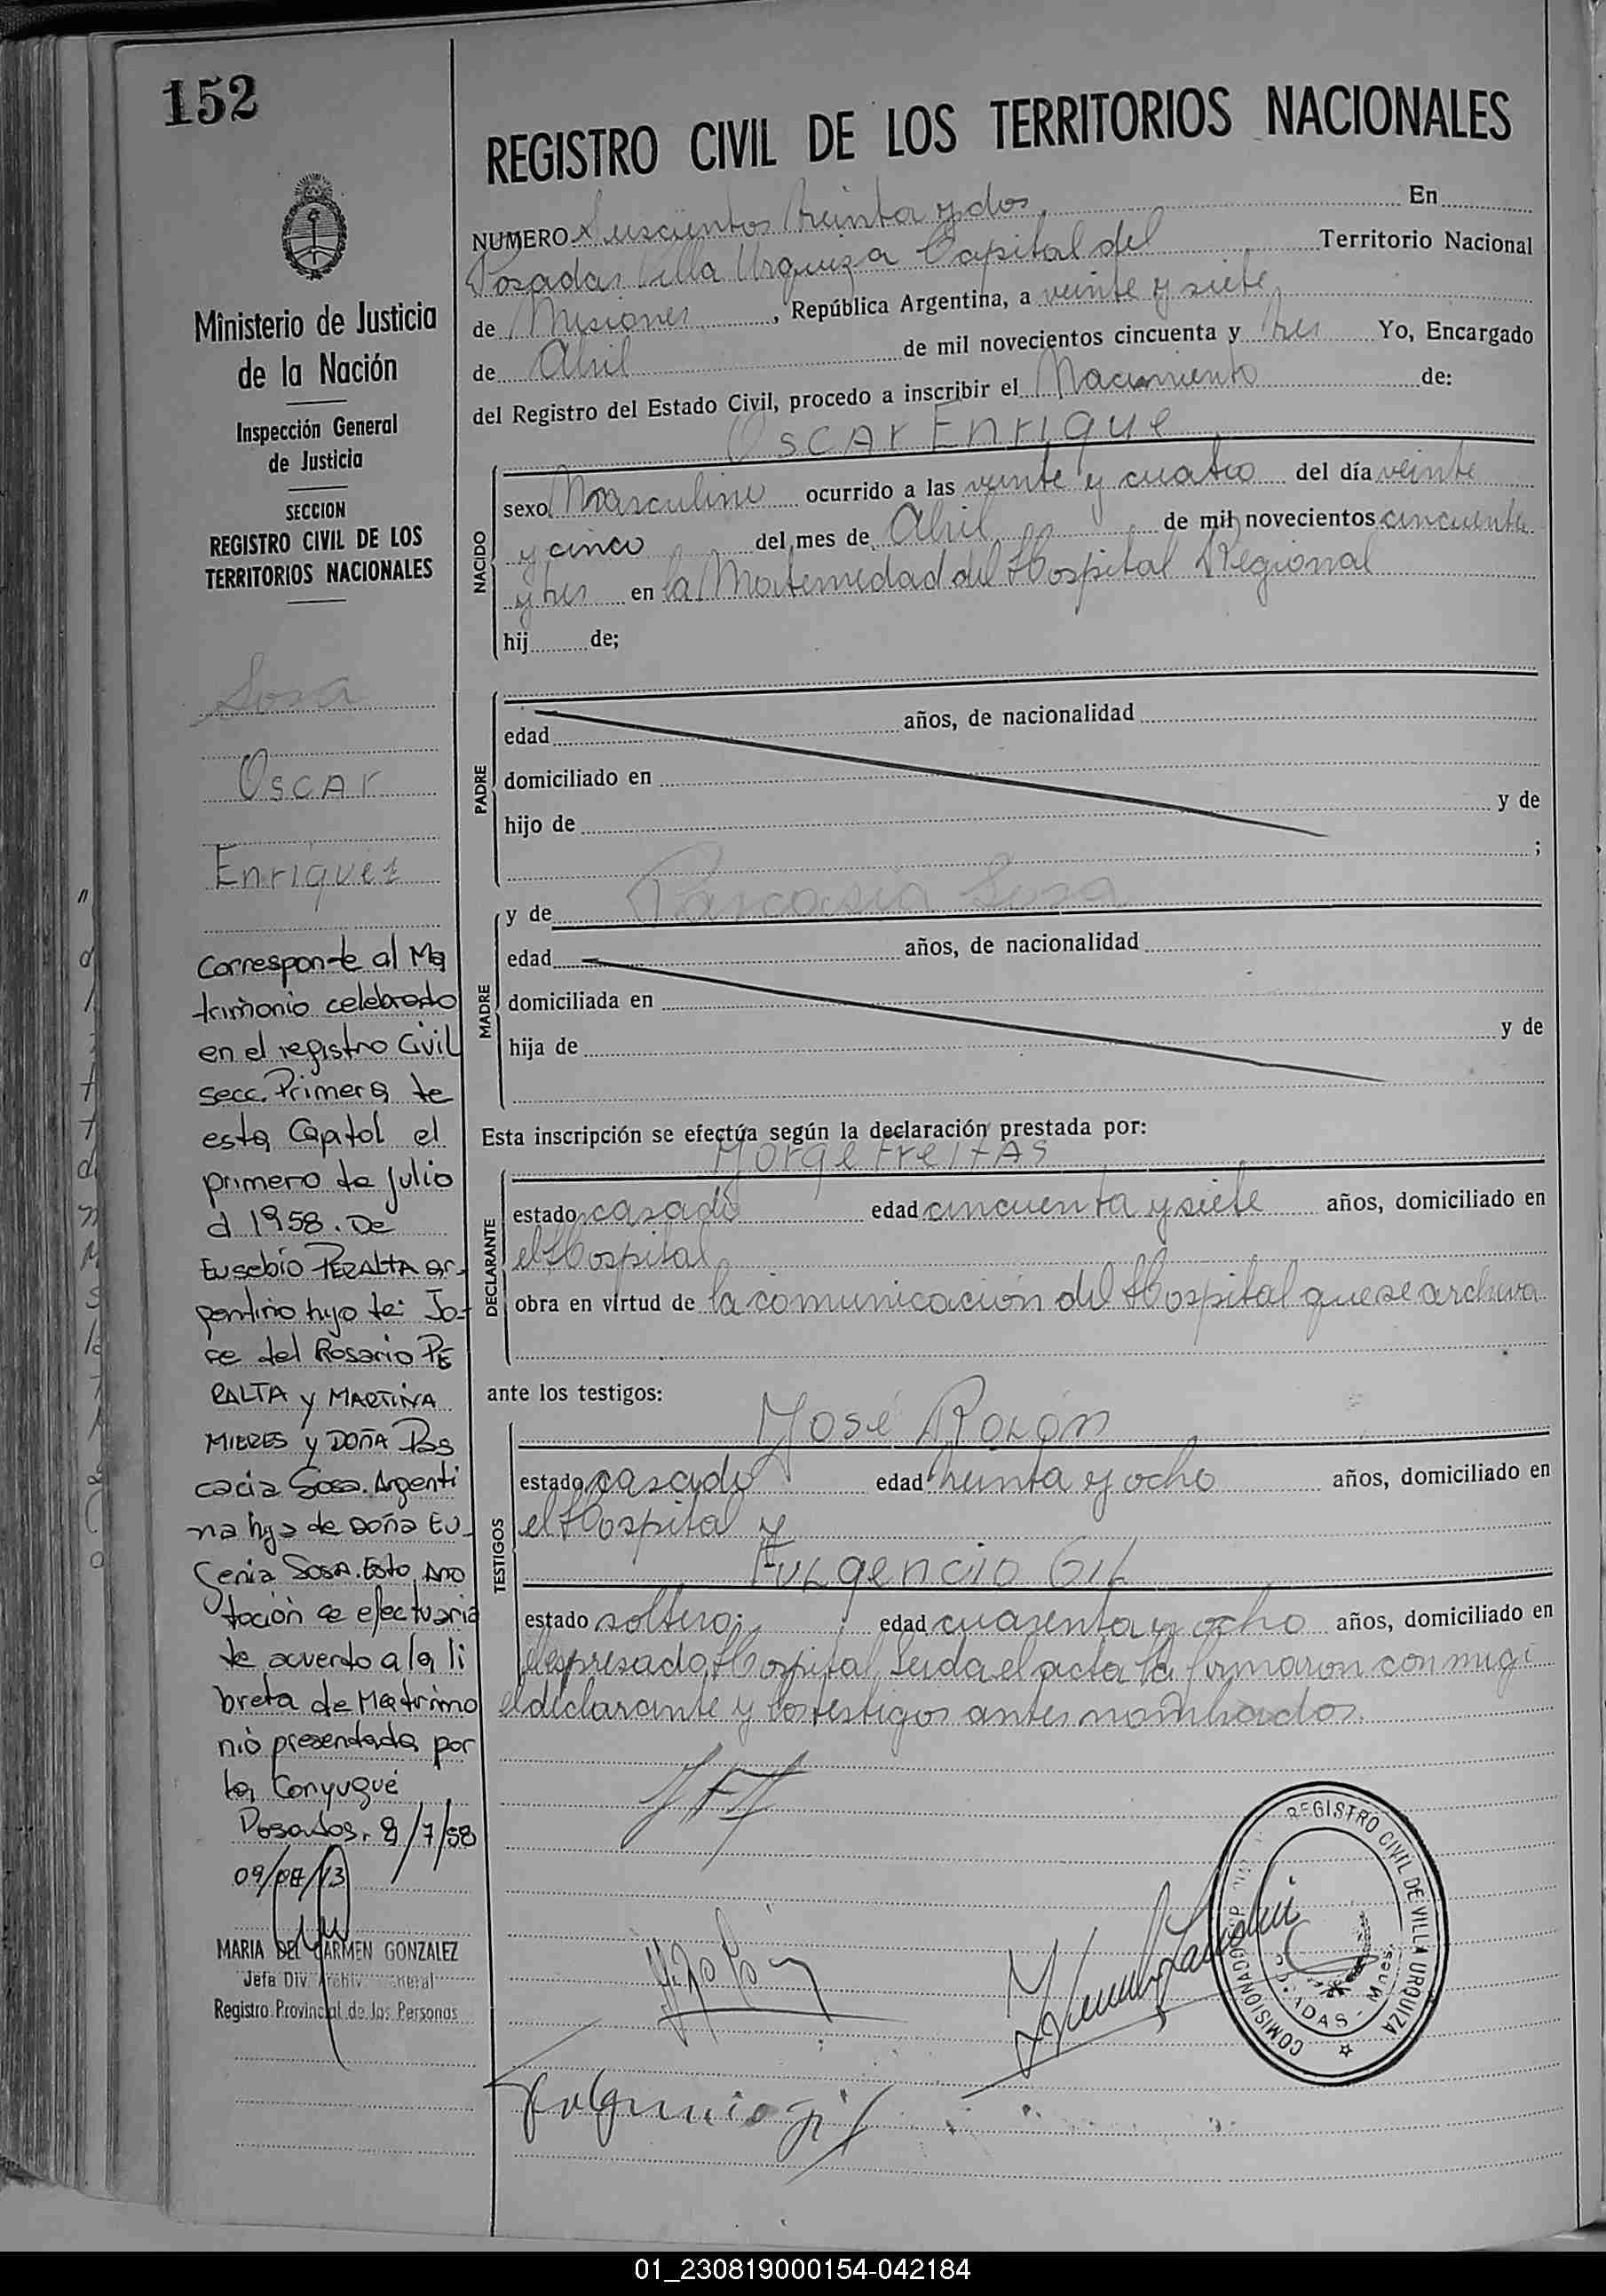 152
REGISTRO CIVIL DE LOS TERRITORIOS NACIONALES
Ministerio de Justicia
de la Nación
Inspección General
de Justicia
SECCION
REGISTRO CIVIL DE LOS
TERRITORIOS NACIONALES
Sosa
Oscar
Enriquez
Corresponte al Ma
trimonio celebrado
en el registro Civil
secc. Primera de
esta Capital el
primero de Julio
d 1958. De
Eusebio PERALTA ar-
gentino hijo de: Jo-
se del Rosario PE
RALTA y MARTINA
MIERES y DOÑA Pas
cacia Sosa. Argenti
na hija de Doña Eu-
genia SOSA. Esto Ano
tación se efectuaria
de acuerdo a la li
breta de Matrimo
nio presentada por
la Conyugué
Posadas, 8/7/58
MARIA DEL CARMEN GONZALEZ
Jefa Div. Archivo General
Registro Provincial de las Personas
NUMERO Seiscientos treinta y dos En
Posadas Villa Urquiza Capital del Territorio Nacional
de Misiones, República Argentina, a veinte y siete
de Abril de mil novecientos cincuenta y tres Yo, Encargado
del Registro del Estado Civil, procedo a inscribir el Nacimiento de:
Oscar Enrique
NACIDO
sexo Masculino ocurrido a las veinte y cuatro del día veinte
y cinco del mes de Abril de mil novecientos cincuenta
y tres en la Maternidad del Hospital Regional
hij de;
PADRE
edad años, de nacionalidad
domiciliado en
hijo de y de
;
y de Pascasia Sosa
MADRE
edad años, de nacionalidad
domiciliada en
hija de y de
Esta inscripción se efectúa según la declaración prestada por:
Jorge Freitas
DECLARANTE
estado casado edad cincuenta y siete años, domiciliado en
el Hospital
obra en virtud de la comunicación del Hospital que se archiva
ante los testigos:
José Rolón
TESTIGOS
estado casado edad treinta y ocho años, domiciliado en
el Hospital y
Fulgencio Gil
estado soltero; edad cuarenta y ocho años, domiciliado en
el espresado Hospital Leida el acta la firmaron conmigo
el declarante y los testigos antes nombrados.
Fulgencio gil
REGISTRO CIVIL DE VILLA URQUIZA
POSADAS - Mnes.
01_230819000154-042184